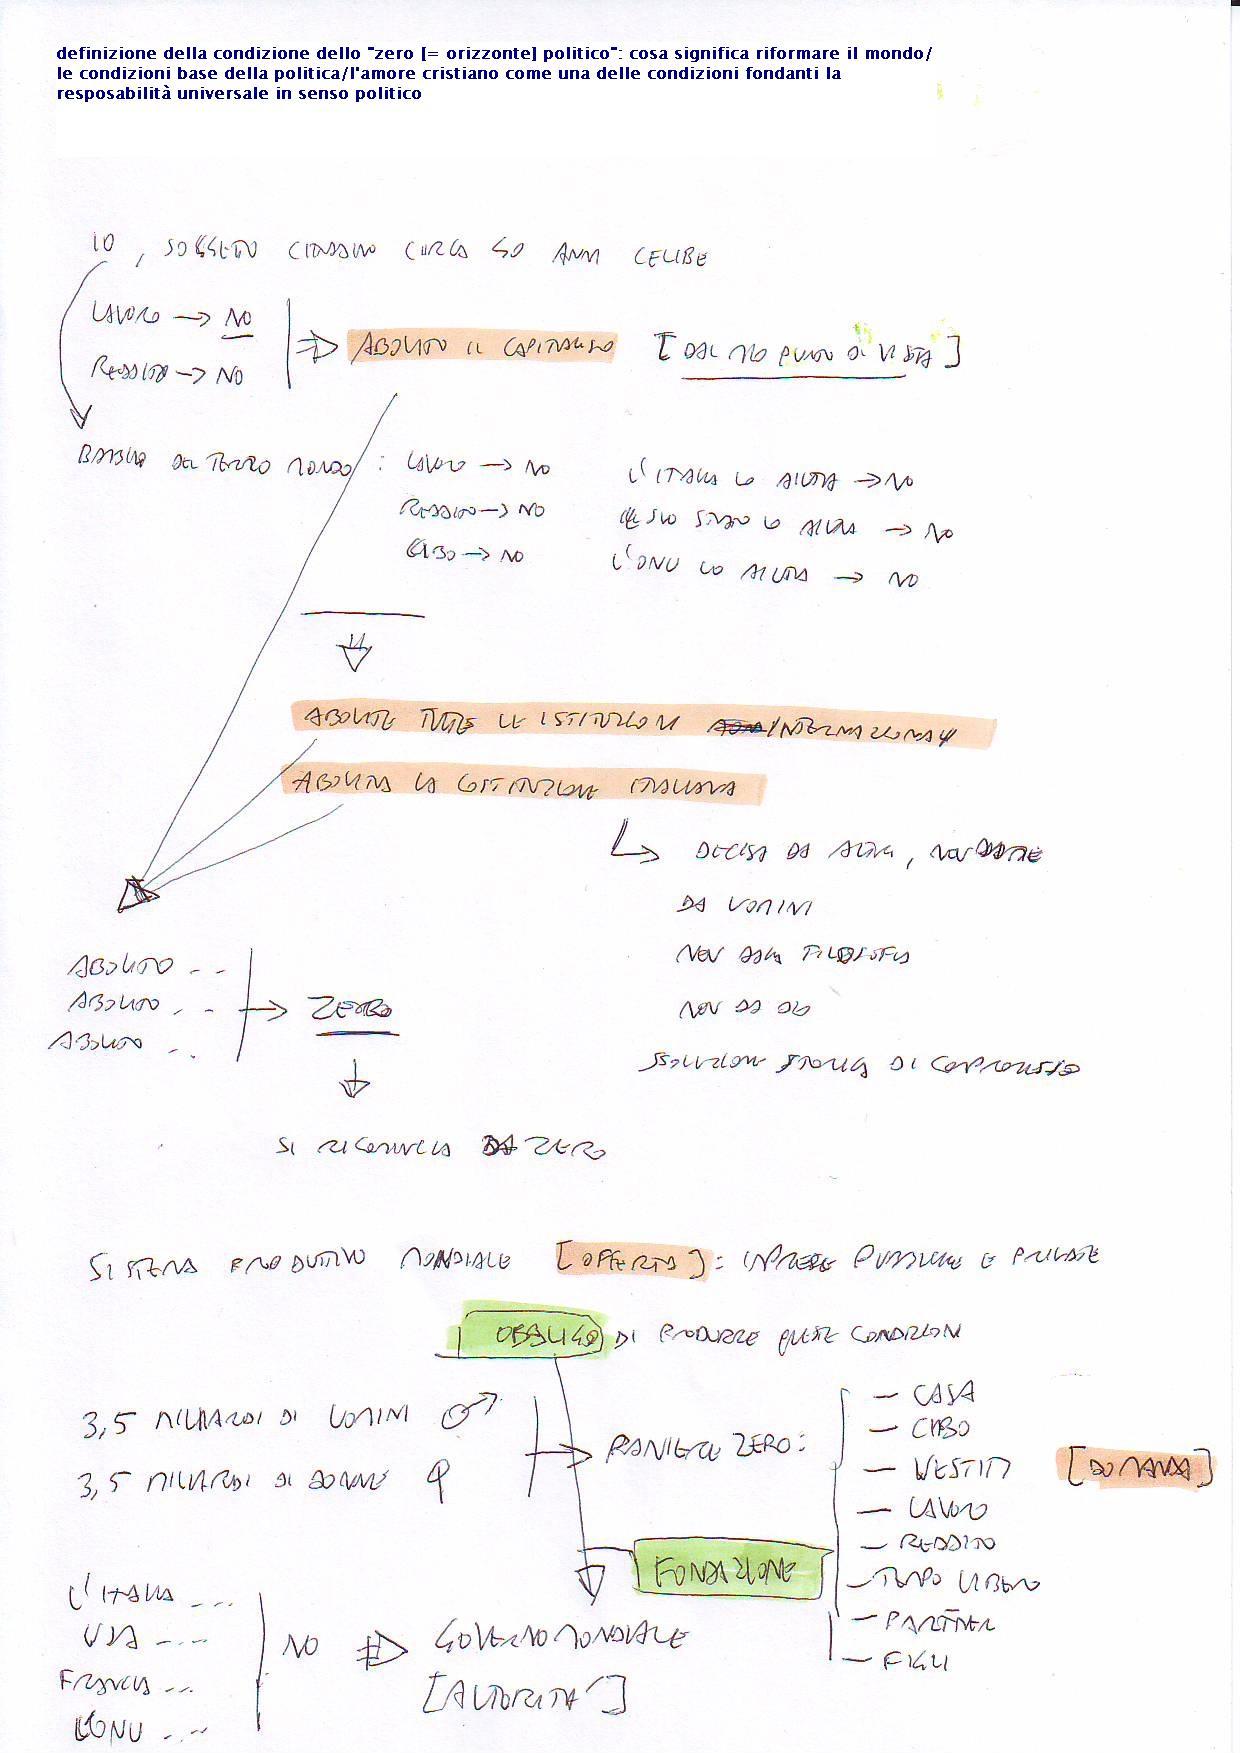 definizione della condizione dello "zero [= orizzonte] politico": cosa significa riformare il mondo/
le condizioni base della politica/l'amore cristiano come una delle condizioni fondanti la
resposabilità universale in senso politico
IO, SOGGETTO CITTADINO CIRCA 50 ANNI CELIBE
LAVORO → NO
REDDITO → NO
ABOLITO IL CAPITALISMO [DAL MIO PUNTO DI VISTA]
BAMBINO DEL TERZO MONDO: LAVORO → NO
REDDITO → NO
CIBO → NO
L'ITALIA LO AIUTA → NO
IL SUO STATO LO AIUTA → NO
L'ONU LO AIUTA → NO
ABOLITE TUTTE LE ISTITUZIONI INTERNAZIONALI
ABOLITA LA COSTITUZIONE ITALIANA
DECISA DA ALTRI, NON
DA UOMINI
NON DALLA FILOSOFIA
NON DA DIO
SOLUZIONE STORICA DI COMPROMESSO
ABOLITO ..
ABOLITO ..
ABOLITO ..
→ ZERO
SI RICOMINCIA DA ZERO
SISTEMA PRODUTTIVO MONDIALE [OFFERTA]: IMPRESE PUBBLICHE E PRIVATE
OBBLIGO DI PRODURRE QUESTE CONDIZIONI
3,5 MILIARDI DI UOMINI ♂
3,5 MILIARDI DI DONNE ♀
→ ZERO:
— CASA
— CIBO
— VESTITI
— LAVORO
— REDDITO
— TEMPO LIBERO
— PARTNER
— FIGLI
[DOMANDA]
FONDAZIONE
L'ITALIA ...
USA ....
FRANCIA ...
L'ONU ....
NO ⇒ GOVERNO MONDIALE
[AUTORITA']